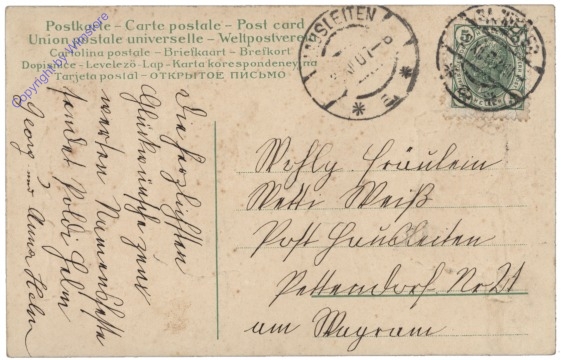 Postkarte - Carte postale - Post card
Union postale universelle - Weltpostverein
Cartolina postale - Briefkaart - Brefkort
Dopisnice - Levelező-Lap - Karta korespondencyjna
Tarjeta postal - ОТКРЫТОЕ ПИСЬМО
Copyright by Winstore
HAUSLEITEN
5
Die herzlichsten
Glückwünsche zum
werten Namensfeste
sendet Poldi Helm
Georg und Anna Helm
Wohlg Fräulein
Netti Weiß
Post Hausleiten
Pettendorf Nr 21
am Wagram